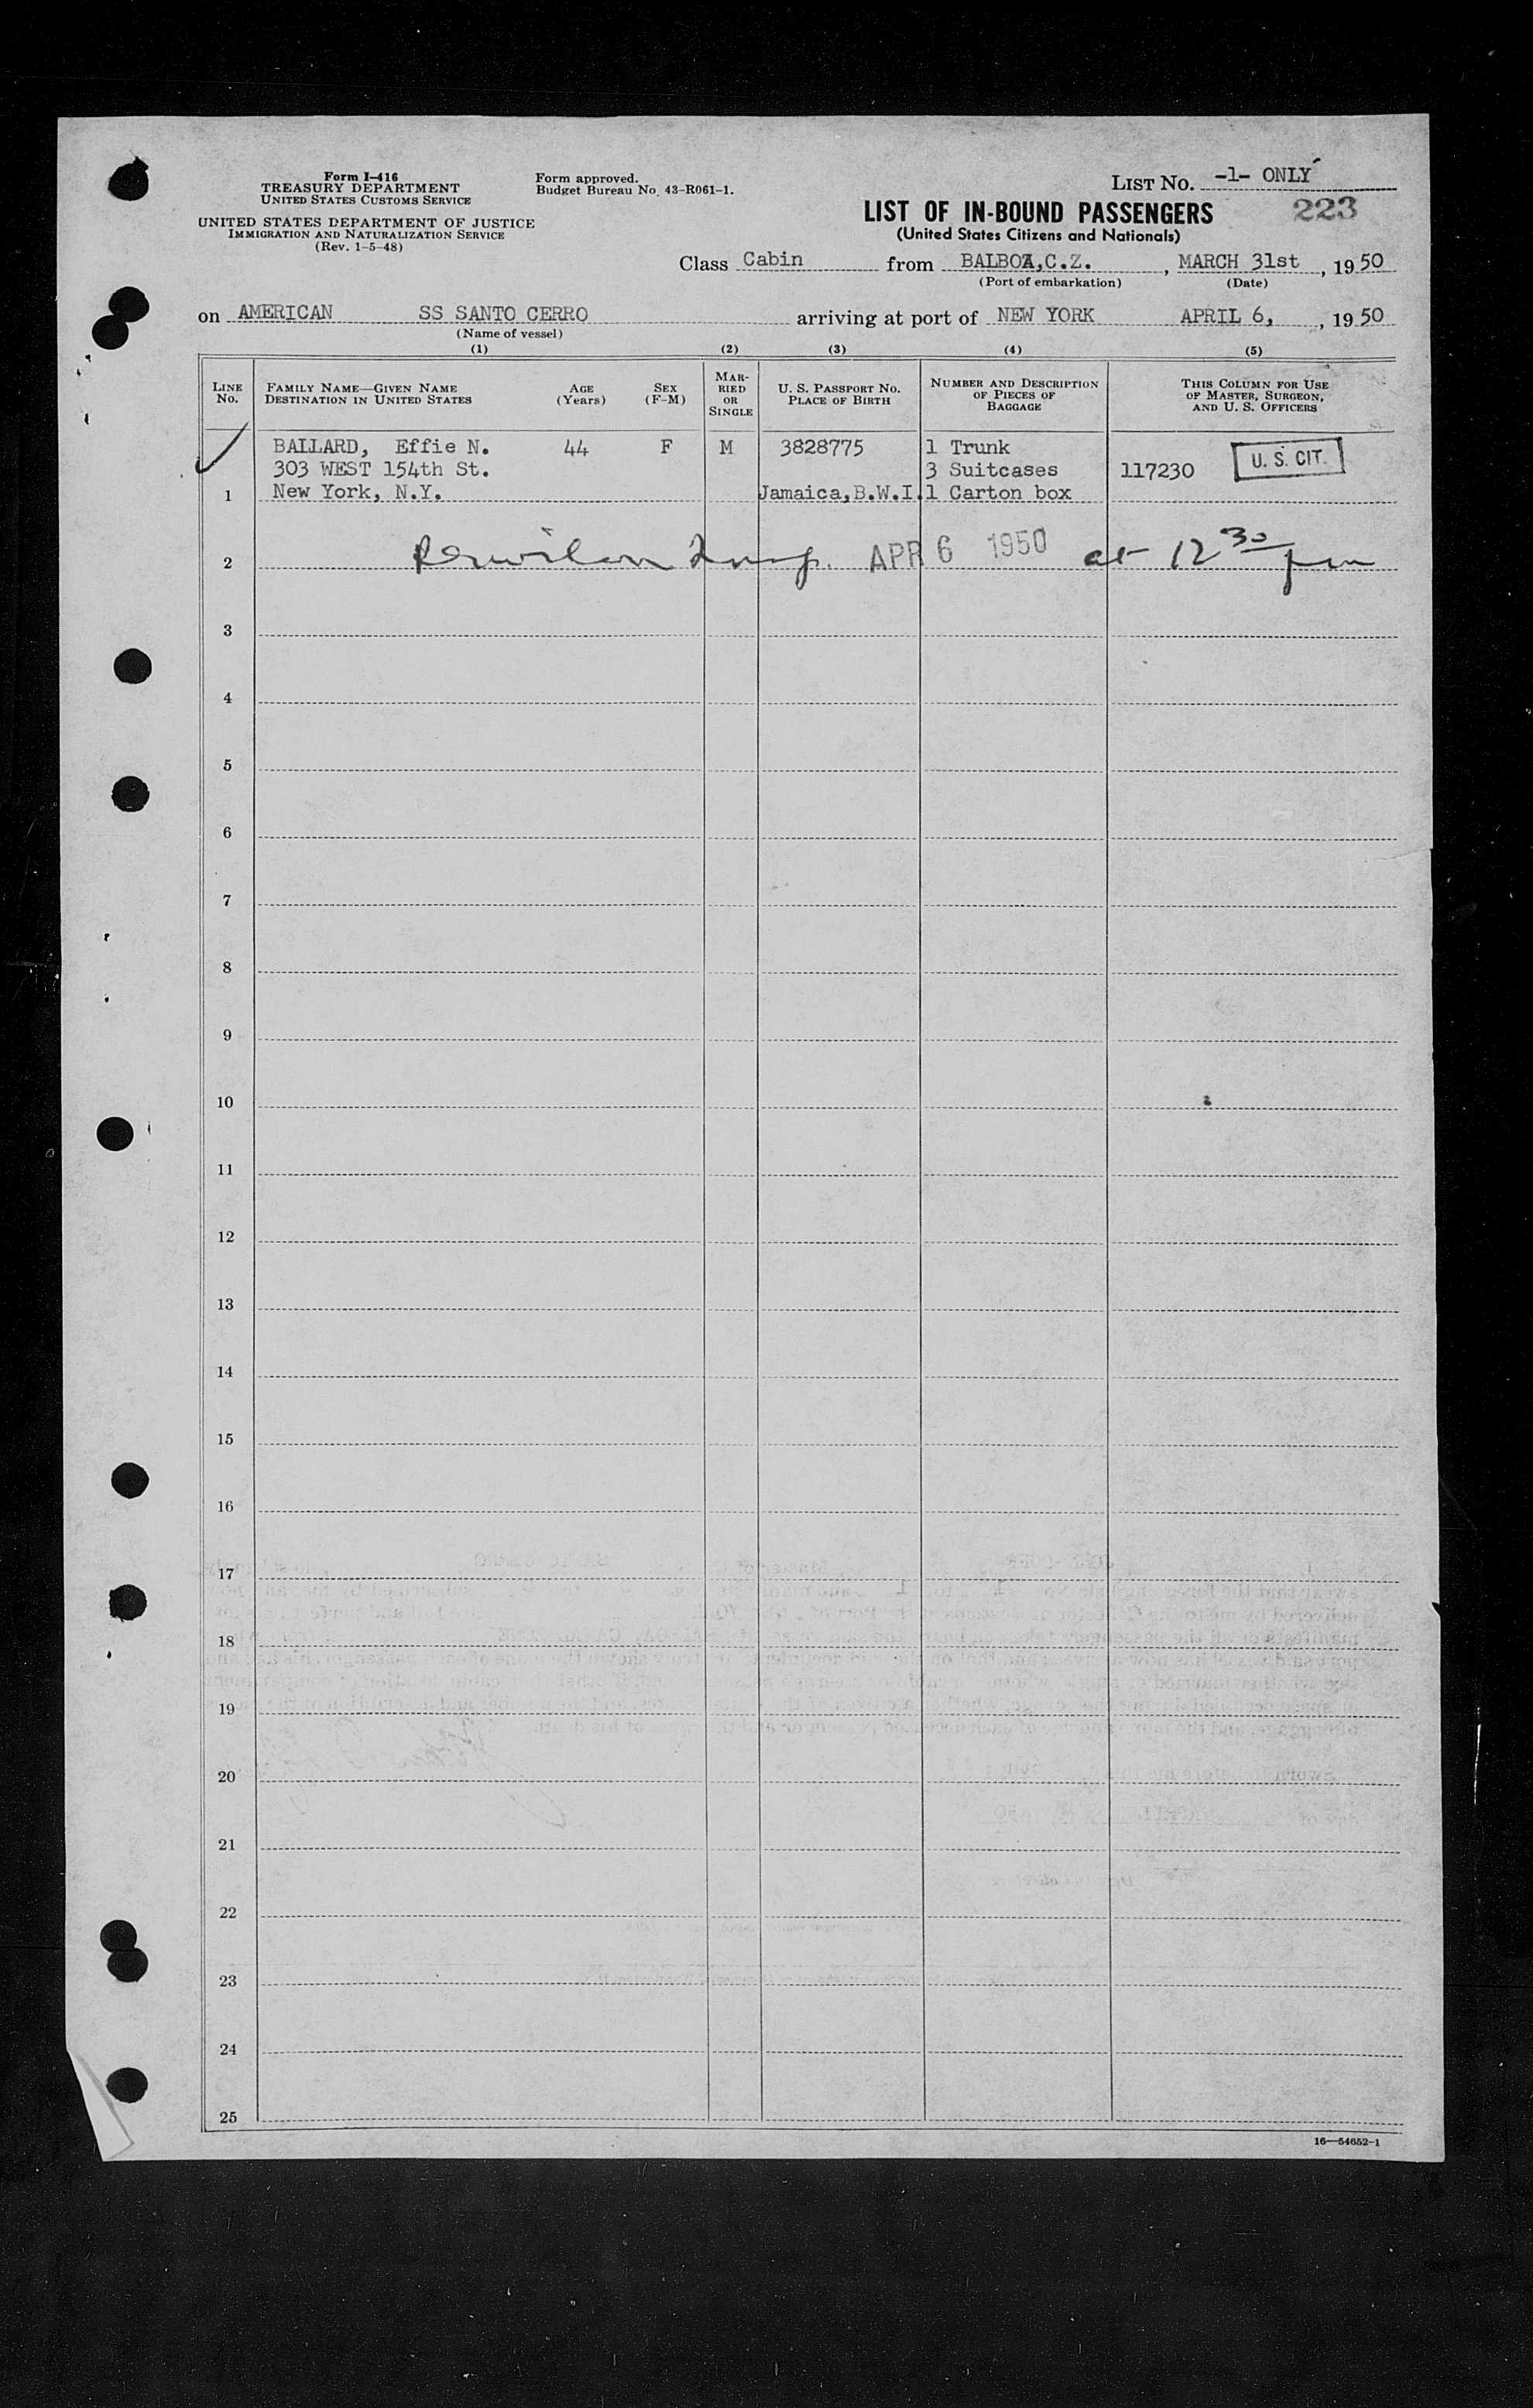 Form I-416
TREASURY DEPARTMENT
UNITED STATES CUSTOMS SERVICE
UNITED STATES DEPARTMENT OF JUSTICE
IMMIGRATION AND NATURALIZATION SERVICE
(Rev. 1-5-48)
Form approved.
Budget Bureau No. 43-R061-1.
LIST No. -1- ONLY
LIST OF IN-BOUND PASSENGERS 223
(United States Citizens and Nationals)
Class Cabin from BALBOA,C.Z. , MARCH 31st , 1950
(Port of embarkation) (Date)
on AMERICAN SS SANTO CERRO arriving at port of NEW YORK APRIL 6, , 1950
(Name of vessel)
(1) (2) (3) (4) (5)
LINE No. FAMILY NAME—GIVEN NAME DESTINATION IN UNITED STATES AGE (Years) SEX (F-M) MARRIED OR SINGLE U. S. PASSPORT No. PLACE OF BIRTH NUMBER AND DESCRIPTION OF PIECES OF BAGGAGE THIS COLUMN FOR USE OF MASTER, SURGEON, AND U. S. OFFICERS
BALLARD, Effie N. 44 F M 3828775 1 Trunk
303 WEST 154th St. 3 Suitcases 117230 U. S. CIT.
1 New York, N.Y. Jamaica,B.W.I. 1 Carton box
2 APR 6 1950 at 12 30 pm
3
4
5
6
7
8
9
10
11
12
13
14
15
16
17
18
19
20
21
22
23
24
25
16—54652-1